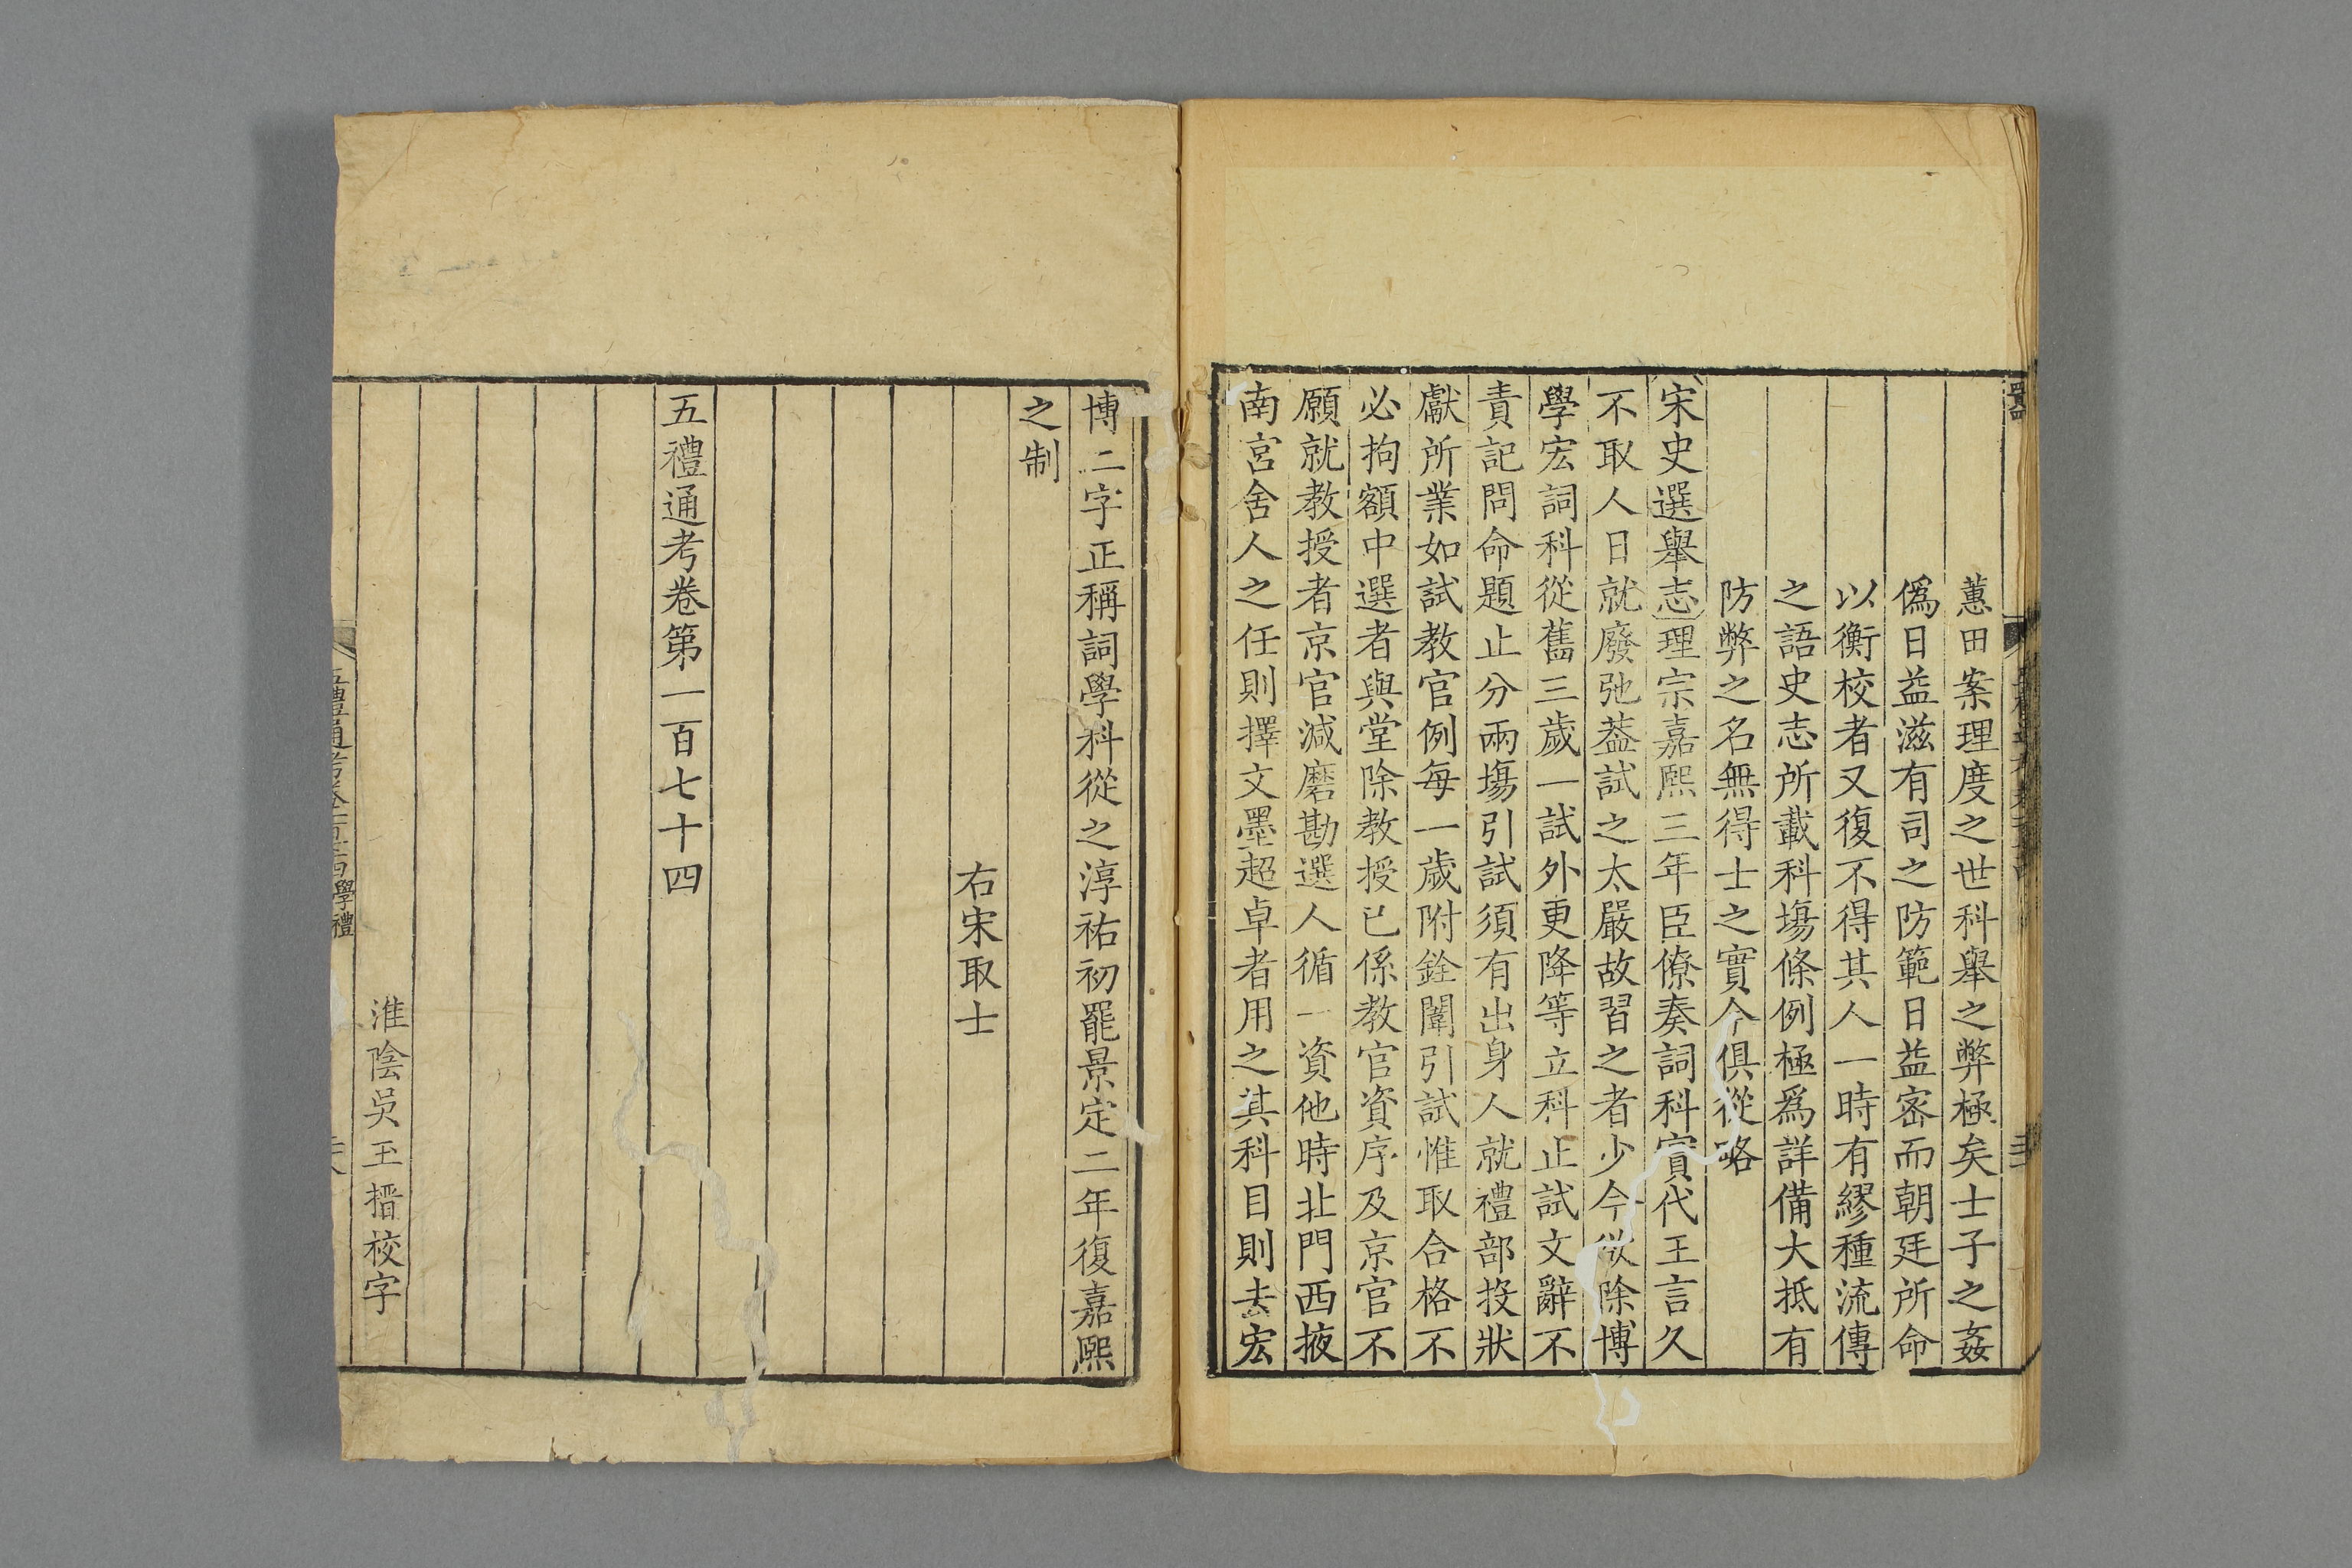 蕙田案理度之世科舉之弊極矣士子之姦
僞日益滋有司之防範日益密而朝廷所命
以衡校者又復不得其人一時有繆種流傳
之語史志所載科塲條例極爲詳備大抵有
防弊之名無得士之實今俱從略
宋史選舉志理宗嘉熙三年臣僚奏詞科實代王言久
不取人日就廢弛葢試之太嚴故習之者少今欲除博
學宏詞科從舊三歲一試外更降等立科止試文辭不
責記問命題止分兩塲引試須有出身人就禮部投狀
獻所業如試教官例每一歲附銓闈引試惟取合格不
必拘額中選者與堂除教授已係教官資序及京官不
願就教授者京官減磨勘選人循一資他時北門西掖
南宮舍人之任則擇文墨超卓者用之其科目則去宏
博二字正稱詞學科從之淳祐初罷景定二年復嘉熙
之制
右宋取士
五禮通考卷第一百七十四
淮陰吳玉搢校字